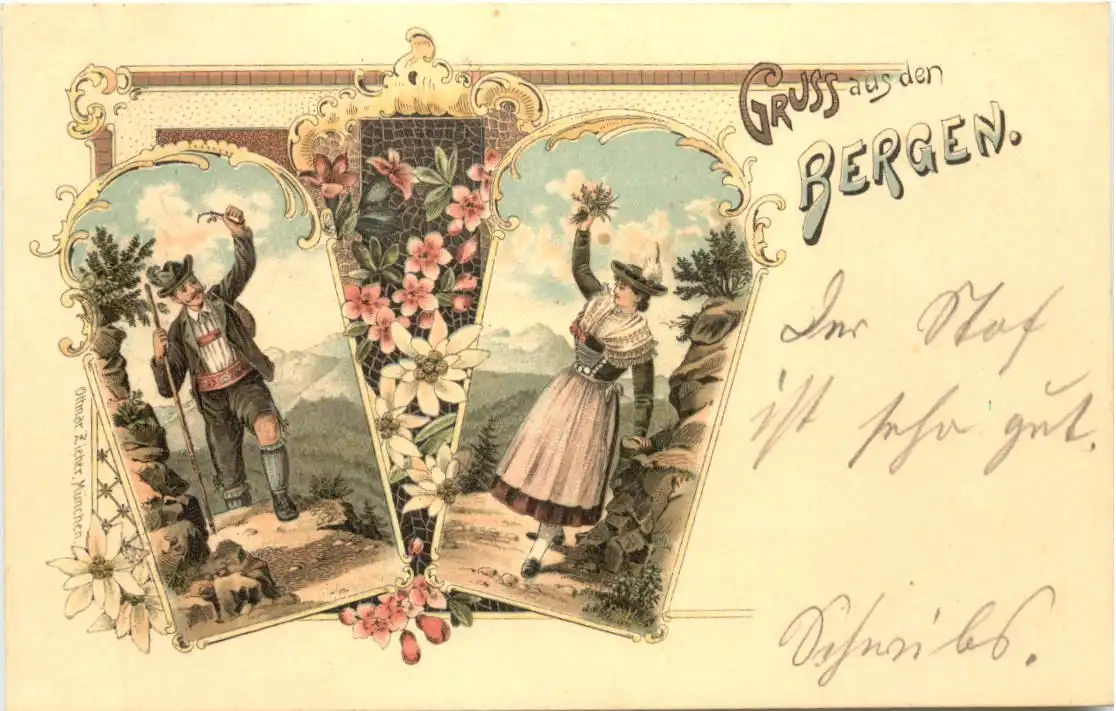 GRUSS aus den
BERGEN.
Der Stof
ist sehr gut.
Schreibs.
Ottmar Zieher, München.